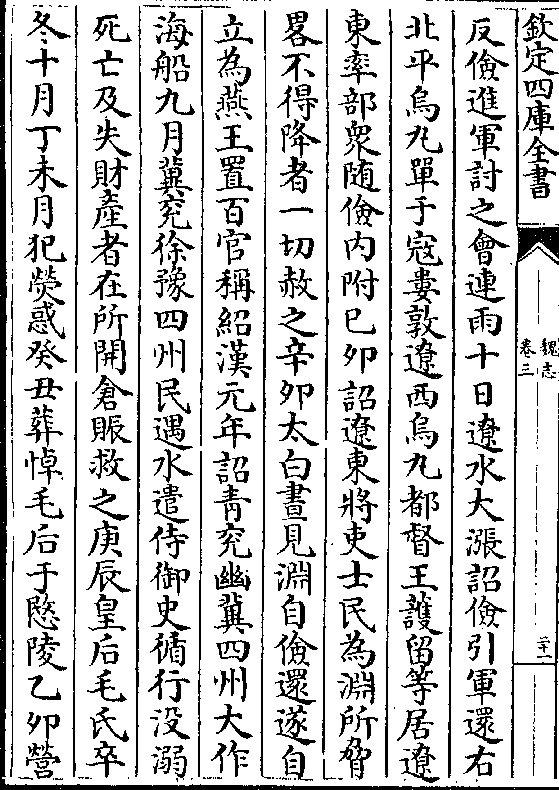 欽定四庫全書
魏志
卷三
二十一
反儉進軍討之會連雨十日遼水大漲詔儉引軍還右
北平烏丸單于寇婁敦遼西烏丸都督王䕶留等居遼
東率部衆随儉内附已夘詔遼東將吏士民為淵所脅
畧不得降者一切赦之辛夘太白晝見淵自儉還遂自
立為燕王置百官稱紹漢元年詔青兖幽冀四州大作
海船九月冀兖徐豫四州民遇水遣侍御史循行没溺
死亡及失財產者在所開倉賑救之庚辰皇后毛氏卒
冬十月丁未月犯熒惑癸丑葬悼毛后于愍陵乙夘營